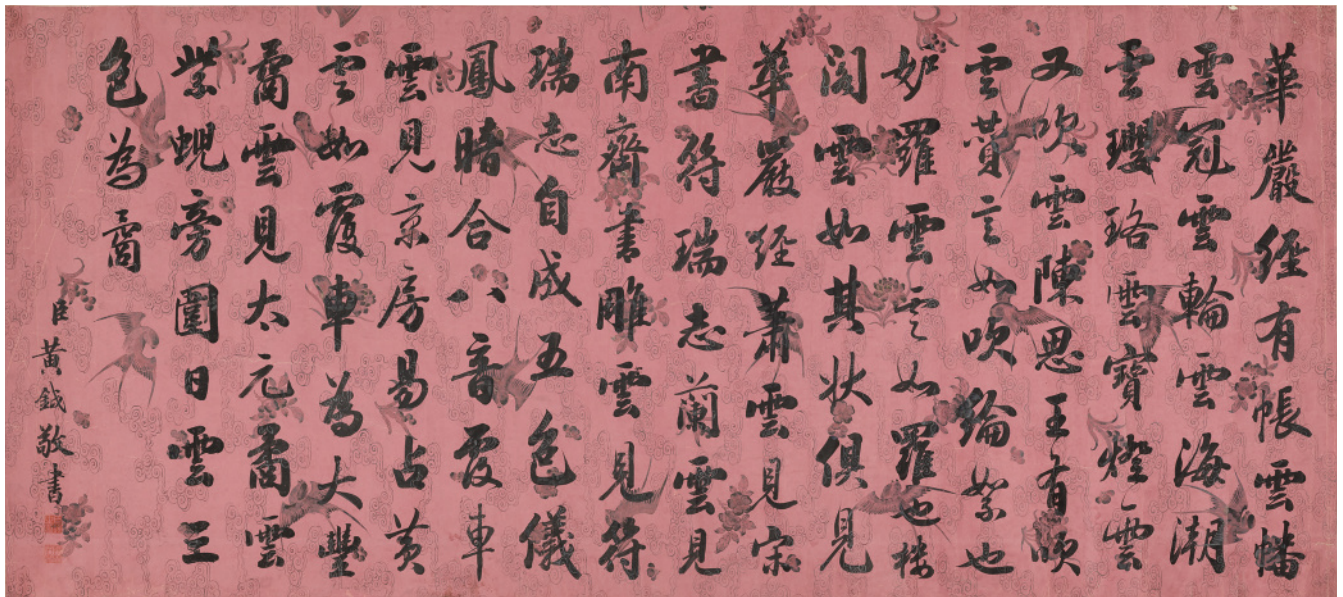 華嚴經有帳雲幡
雲冠雲輪雲海潮
雲瓔珞雲寶燈雲
又吹雲陳思王有吹
雲賛言如吹綸絮也
妒羅雲雲如羅也楼
閣雲如其状俱見
華嚴經蕭雲見宋
書符瑞志蘭雲見
南齊書雕雲見符
瑞志自成五色儀
鳳暗合八音覆車
雲見京房易占黄
雲如覆車為大豐
矞雲見太元矞雲
紫蜺旁圍日雲三
色為矞
臣黄鉞敬書